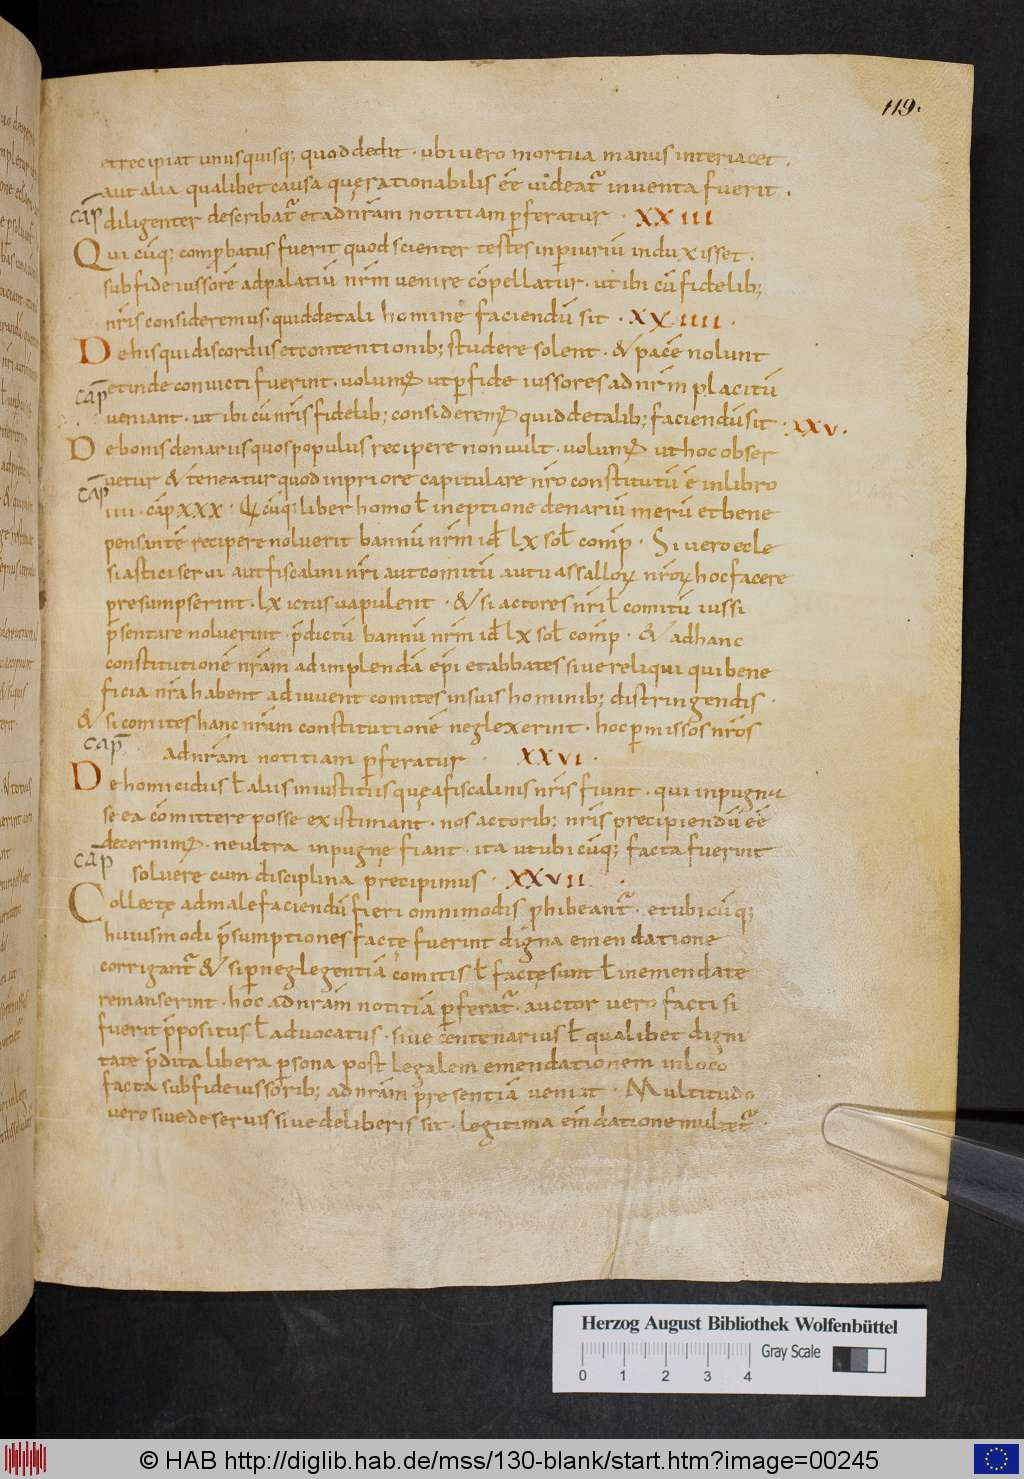 119.
et recipiat unusquisq; quod dedit · ubi vero mortua manus interiacet .
aut alia qualibet causa quę rationabilis eē videat᷑ inventa fuerit .
cap̄ diligenter describat᷑ et ad nr̄am notitiam p̱feratur · XXIII
Qui cūq; comp̱batus fuerit quod scienter testes in p̱iuriū induxisset .
sub fideiussorē ad palatiū nr̄m venire cōpellatur · ut ibi cū fidelib;
nr̄is consideremus quid de tali homine faciendū sit . XXIIII .
De his qui discordiis et contentionib; studere solent . & pacē nolunt
cap̄ et inde convicti fuerint . volum᷒ ut p̱ fideiussores ad nr̄m placitū
veniant . ut ibi cū nr̄is fidelib; considerem᷒ quid de talib; faciendū sit . XXV .
De bonis denariis quos populus recipere non vult . volum᷒ ut hoc obser
cap̄ vetur & teneatur quod in priore capitulare nr̄o constitutū ē in libro
IIII . cap̄ XXX . Qicūq; liber homo ł ineptione denariū merū et bene
pensantē recipere noluerit bannū nr̄m id̄ lx sol̄ comp̄ . Si vero ecle
siastici servi aut fiscalini nr̄i aut comitū aut vassalloꝝ nr̄oꝝ hoc facere
presumpserint . lx ictus vapulent . & si actores nr̄i ł comitū iussi
p̄sentare noluerint . p̄dictū bannū nr̄m id̄ lx sol̄ comp̄ . & ad hanc
constitutionē nr̄am adimplendā ep̄i et abbates sive reliqui qui bene
ficia nr̄a habent adiuvent comites in suis hominib; distringendis .
& si comites hanc nr̄am constitutionē neglexerint . hoc p̱ missos nr̄os
cap̄ ad nr̄am notitiam p̱feratur . XXVI .
De homicidiis ł aliis iniustitiis quę a fiscalinis nr̄is fiunt . qui inpugnę
se ea cōmittere posse existimant . nos actorib; nr̄is precipiendū eē
decernim᷒ . ne ultra inpugnę fiant . ita ut ubicūq; facta fuerint
cap̄ solvere cum disciplina pręcipimus . XXVII .
Collectę ad malefaciendū fieri omnimodis p̱hibeant᷑ . et ubicūq;
huiusmodi p̄sumptiones factę fuerint digna emendatione
corrigant᷑ & si p̱ neglegentiā comitis ł factę sunt ł inemendate
remanserint . hoc ad nr̄am notitiā p̱ferat᷑ . auctor vero facti si
fuerit p̄positus ł advocatus . sive centenarius ł qualibet digni
tate p̄dita libera p̱sona post legalem emendationem in loco
facta sub fideiussorib; ad nr̄am presentiā veniat . Multitudo
vero sive de servis sive de liberis sit . legitima em̄datione multet᷑ .
Herzog August Bibliothek Wolfenbüttel
Gray Scale
0 1 2 3 4
© HAB http://diglib.hab.de/mss/130-blank/start.htm?image=00245